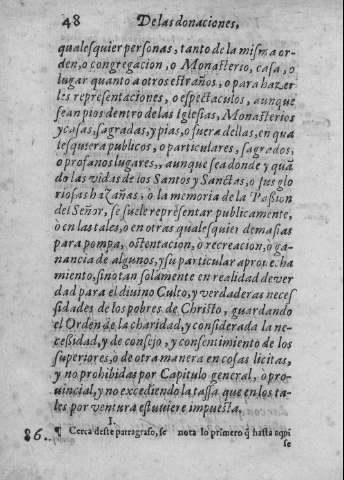 48 De las donaciones,
qualesquier personas, tanto de la misma or-
den, o congregacion, o Monasterio, casa, o
lugar quanto a otros estraños, o para hazer
les representaciones, o espectaculos, aunque
sean pios dentro de las Iglesias, Monasterios
y casas, sagradas, y pias, o fuera dellas, en qua
lesquiera publicos, o particulares, sagrados,
o profanos lugares,, aunque sea donde y quã
do las vidas de los Santos y Sanctas, o sus glo
riosas hazañas, ò la memoria de la Passion
del Señor, se suele representar publicamente,
ò en las tales, o en otras qualesquier demasias
para pompa, ostentacion, ò recreacion, ò ga-
nancia de algunos, y su particular aproueccha
miento, sino tan solamente en realidad de ver
dad para el diuino Culto, y verdaderas neces
sidades de los pobres de Christo, guardando
el Orden de la charidad, y considerada la ne-
cessidad, y de consejo, y consentimiento de los
superiores, ò de otra manera en cosas licitas,
y no prohibidas por Capitulo general, ò pro-
uincial, y no excediendo la tassa que en los ta-
les por ventura estuuiere impuesta.
I.
86. ¶ Cerca deste parragrafo, se nota lo primero q̃ hasta aqui
se